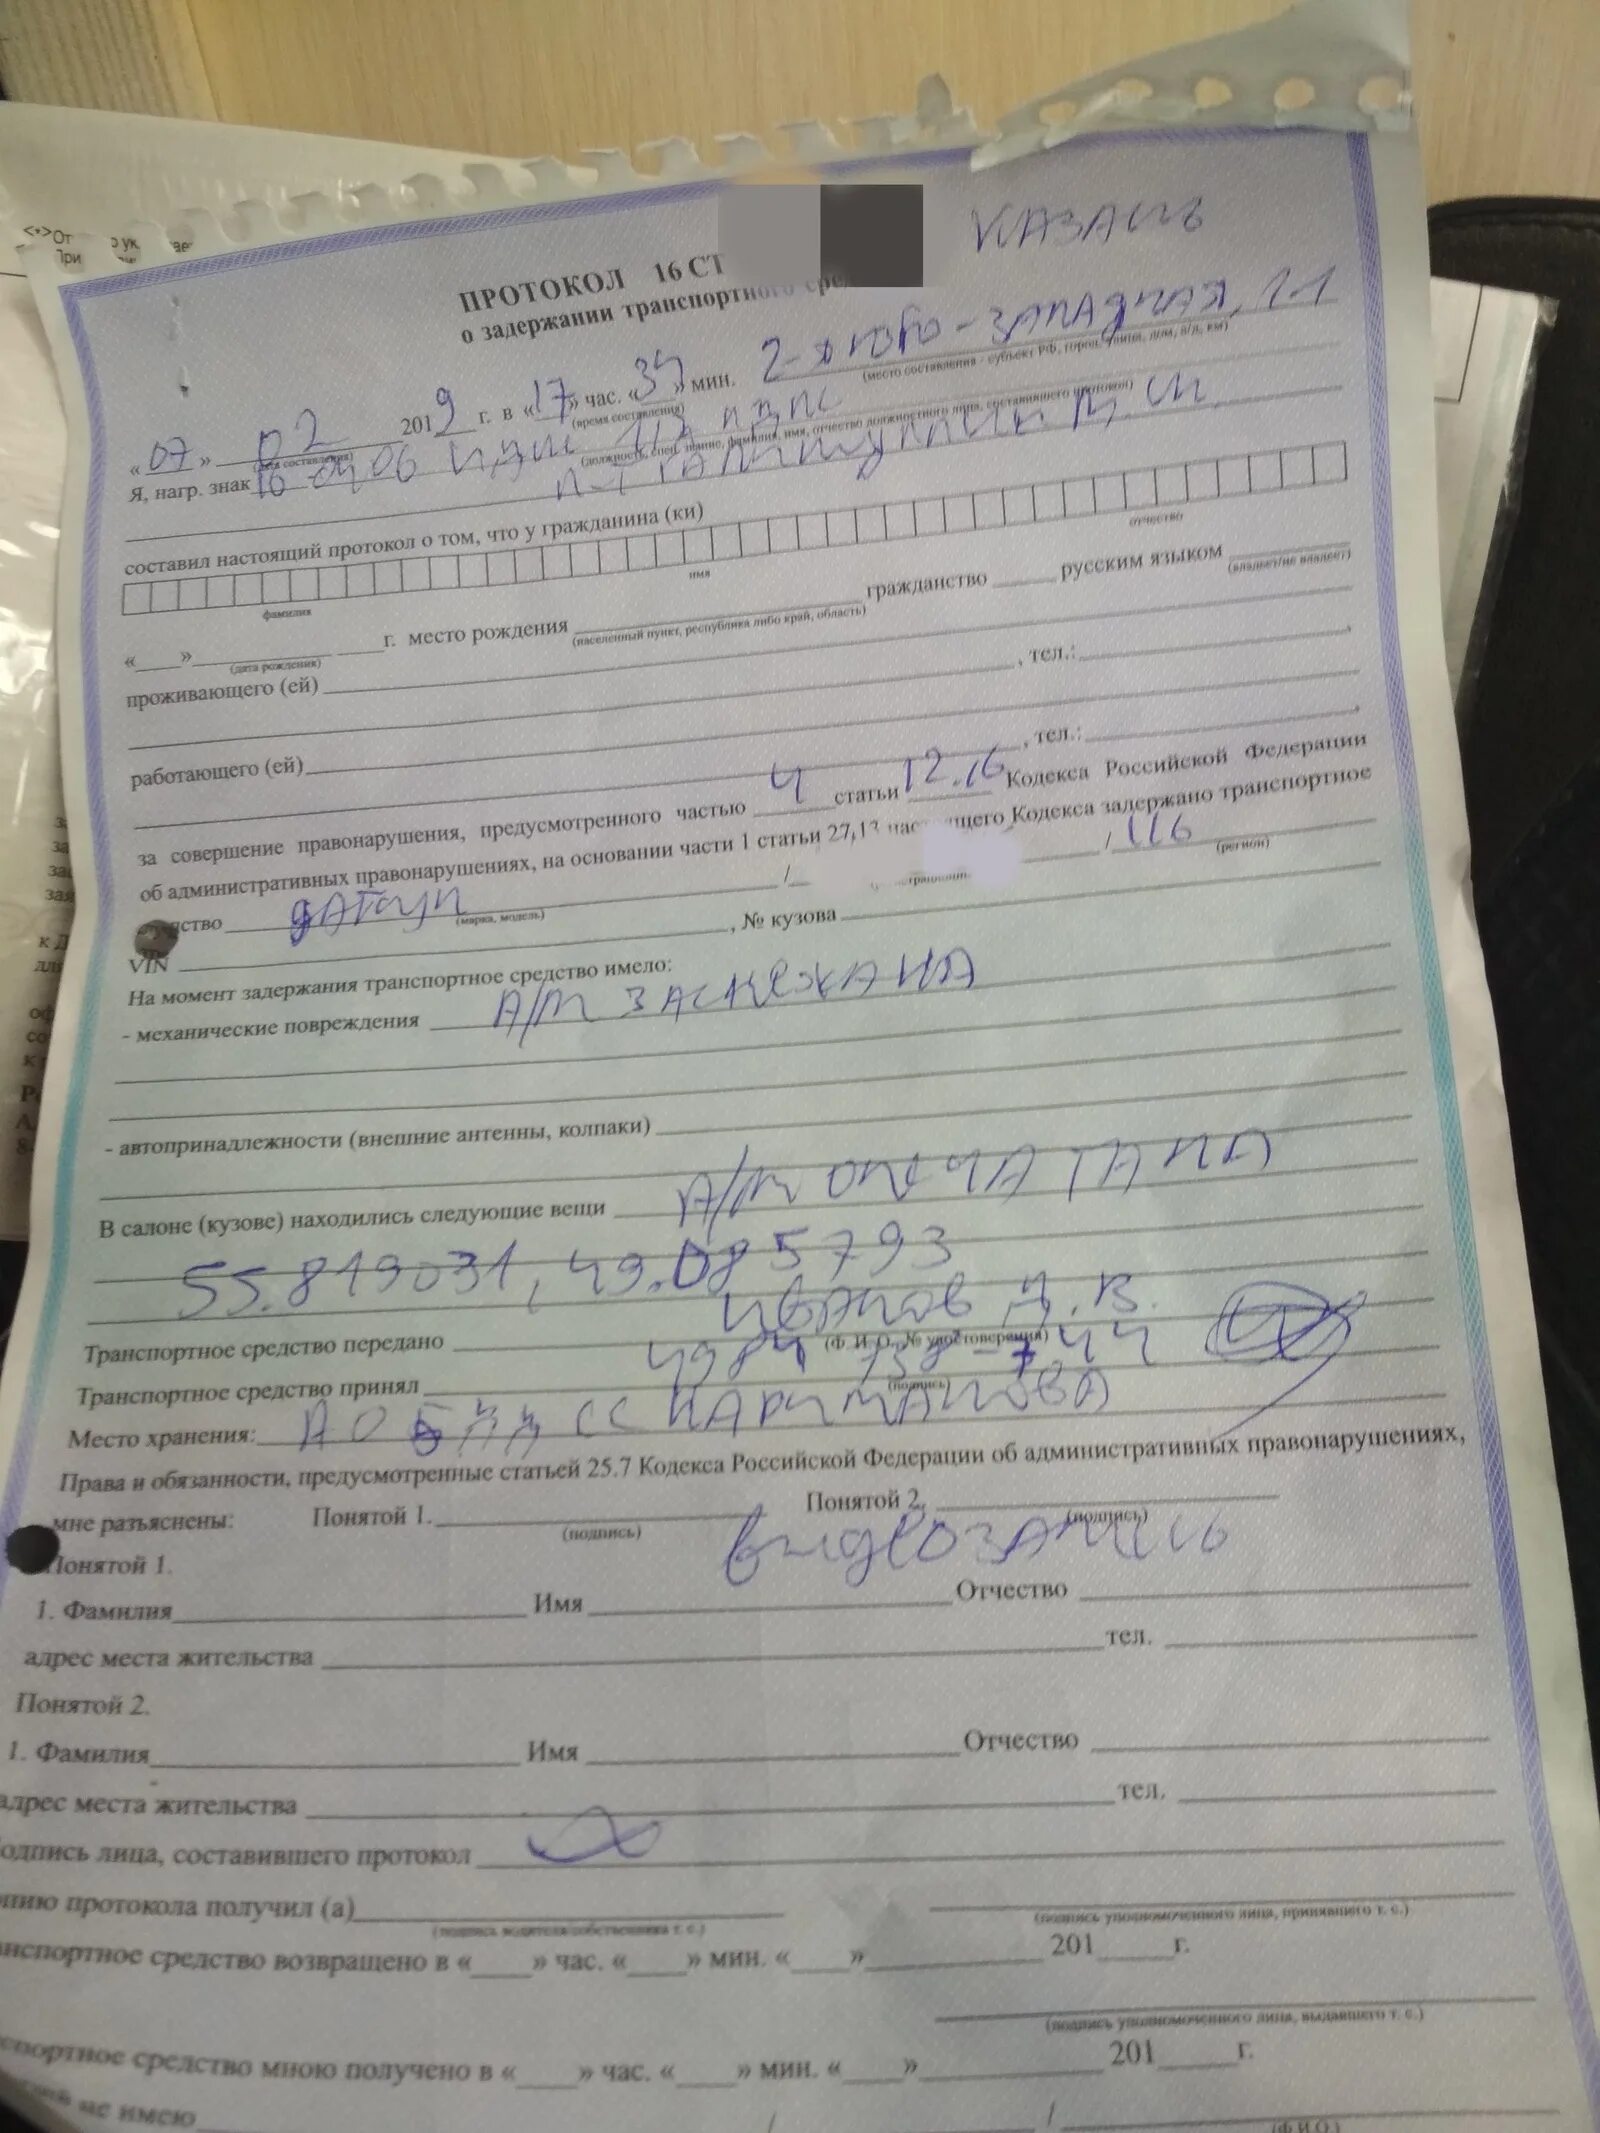 <*>От
При
ПРОТОКОЛ 16 СТ
КАЗАНЬ
о задержании транспортного сре
«07» 02 2019 г. в «17» час. «34» мин. 2-я Юго-Западная,
(дата составления) (время составления) (место составления - субъект РФ, город, улица, д/м, а/д, км)
Я, нагр. знак
(должность, спец. звание, фамилия, имя, отчество должностного лица, составившего протокол)
составил настоящий протокол о том, что у гражданина (ки)
фамилия имя отчество
« » г. место рождения гражданство русским языком
(дата рождения) (населенный пункт, республика либо край, область) (владеет/не владеет)
проживающего (ей) , тел.:
работающего (ей) , тел.:
за совершение правонарушения, предусмотренного частью 4 статьи 12.16 Кодекса Российской Федерации
об административных правонарушениях, на основании части 1 статьи 27,13 Кодекса задержано транспортное
ДАТСУН / / 116
(марка, модель) (регион)
VIN , № кузова
На момент задержания транспортное средство имело:
- механические повреждения А/М ЗАСНЕЖАНА
- автопринадлежности (внешние антенны, колпаки)
В салоне (кузове) находились следующие вещи А/М ОПЕЧАТАНА
55.819031, 49.085793
Транспортное средство передано Иванов Д.В.
(Ф.И.О., № удостоверения)
Транспортное средство принял
(подпись)
Место хранения: АО БДД СС НАРИМАНОВА
Права и обязанности, предусмотренные статьей 25.7 Кодекса Российской Федерации об административных правонарушениях,
мне разъяснены: Понятой 1. Понятой 2.
(подпись) (подпись)
видеозапись
Понятой 1.
1. Фамилия Имя Отчество
адрес места жительства тел.
Понятой 2.
1. Фамилия Имя Отчество
адрес места жительства тел.
одпись лица, составившего протокол
опию протокола получил (а)
(подпись водителя/собственника т. с.) (подпись уполномоченного лица, принявшего т. с.)
анспортное средство возвращено в « » час. « » мин. « » 201 г.
(подпись уполномоченного лица, выдавшего т. с.)
спортное средство мною получено в « » час. « » мин. « » 201 г.
не имею / /
(Ф.И.О.)